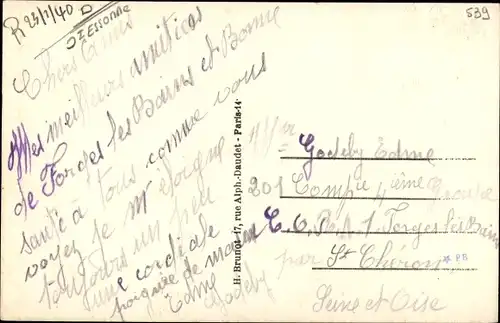 R 23/1/40 D
Sᵗ Essonne
539
Chers Amis
Mes meilleurs amitiés
de Forges les Bains et Bonne
santé a tous comme vous
voyez je m éloigne
toujours un peu
une cordiale
poignée de main
Edme
Godeby
H. Brunot-17, rue Alph.-Daudet - Paris-14ᵉ
Godeby Edme
201 Compie 4ième
C.O.R.A 1 Forges les Bains
par St Chéron
Seine et Oise